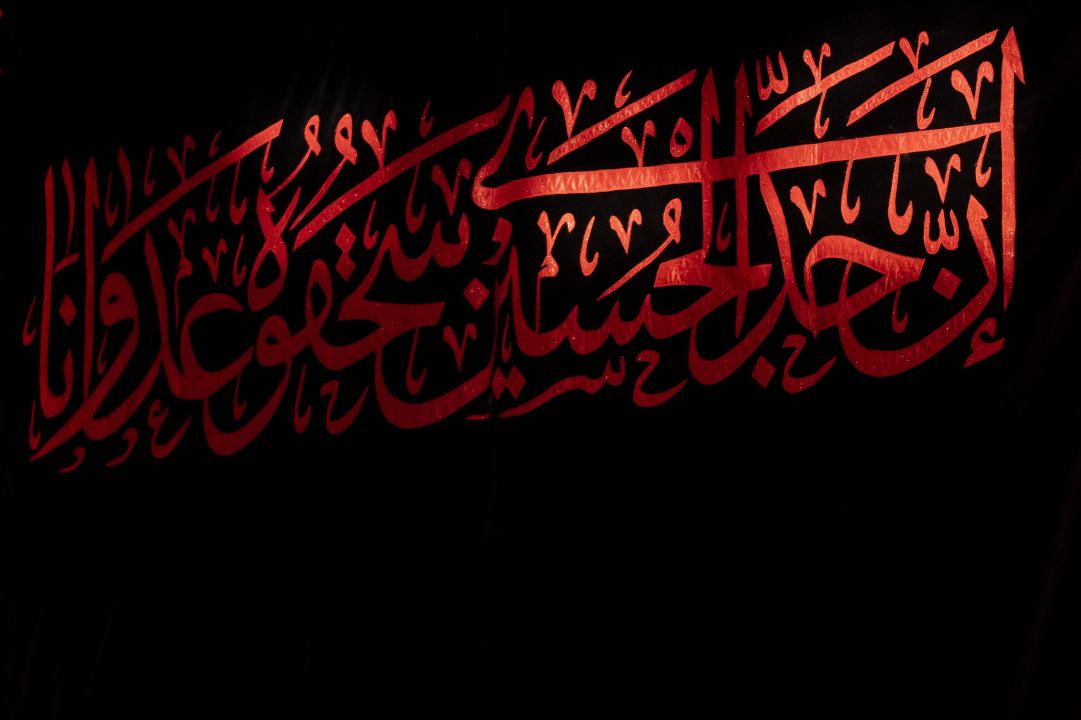 إِنَّ جَدِّيَ الْحُسَيْنَ سَحَقُوهُ عُدْوَانًا